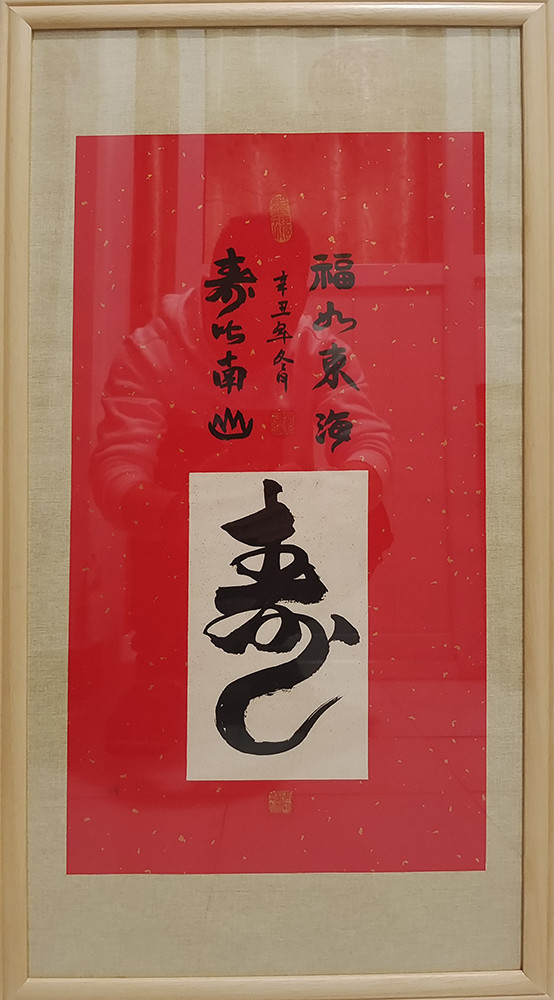 福如東海
辛丑年冬月
寿比南山
寿